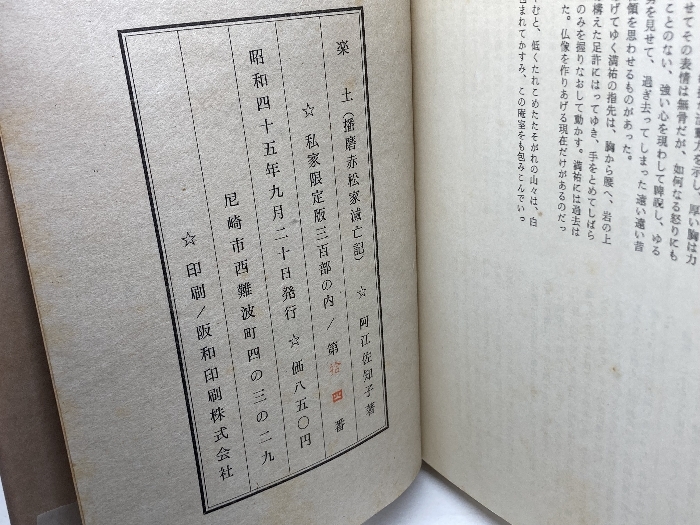 せてその表情は無骨だが、如何なる怒りにも
ことのない、強い心を現わして脾睨し、ゆる
を見せて、過ぎ去ってしまった遠い遠い昔
領を思わせるものがあった。
げてゆく満祐の指先は、胸から腰へ、岩の上
構えた足許にはってゆき、手をとめてしばら
のみを握りなおして動かす。満祐には過去は
た。仏像を作りあげる現在だけがあるのだっ
やむと、低くたれこめたたそがれの山々は、白
まれてかすみ、この庵室をも包みこんでいっ
楽土(播磨赤松家滅亡記) ☆ 阿江佐知子著
☆ 私家限定版三百部の内/第拾四番
昭和四十五年九月二十日発行 ☆ 価八五〇円
尼崎市西難波町四の三の二九
☆ 印刷/阪和印刷株式会社